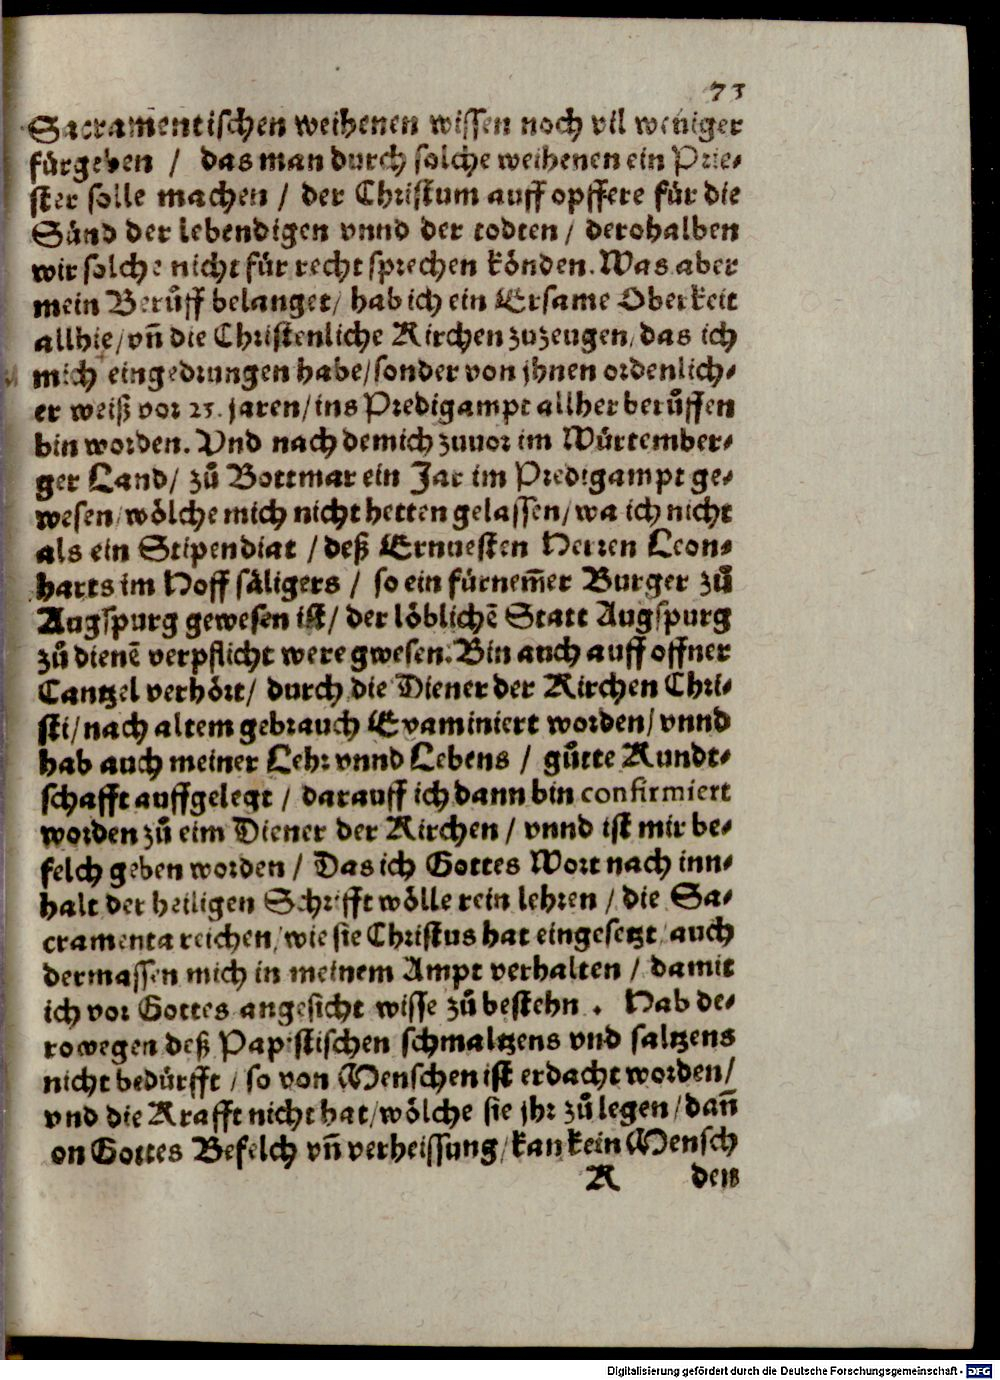 73
Sacramentischen weihenen wissen noch vil weniger
fürgeben / das man durch solche weihenen ein Prie-
ster solle machen / der Christum auff opffere für die
Sünd der lebendigen vnnd der todten / derohalben
wir solche nicht für recht sprechen könden. Was aber
mein Berůff belanget / hab ich ein Ersame Oberkeit
allhie / vñ die Christenliche Kirchen zuzeugen / das ich
mich eingedrungen habe / sonder von jhnen ordenlich-
er weiß vor 25. jaren / ins Predigampt allher berůffen
bin worden. Vnd nach dem ich zuuor im Würtember-
ger Land / zů Bottmar ein Jar im Predigampt ge-
wesen / wölche mich nicht hetten gelassen / wa ich nicht
als ein Stipendiat / deß Ernuesten Herren Leon-
harts im Hoff säligers / so ein fürnem̃er Burger zů
Augspurg gewesen ist / der löblichẽ Statt Augspurg
zů dienẽ verpflicht were gwesen. Bin auch auff offner
Cantzel verhört / durch die Diener der Kirchen Chri-
sti / nach altem gebrauch Examiniert worden / vnnd
hab auch meiner Lehr vnnd Lebens / gůtte Kundt-
schafft auffgelegt / darauff ich dann bin confirmiert
worden zů eim Diener der Kirchen / vnnd ist mir be-
felch geben worden / Das ich Gottes Wort nach inn-
halt der heiligen Schrifft wölle rein lehren / die Sa-
cramenta reichen / wie sie Christus hat eingesetzt / auch
dermassen mich in meinem Ampt verhalten / damit
ich vor Gottes angesicht wisse zů bestehn . Hab de-
rowegen deß Papistischen schmaltzens vnd saltzens
nicht bedürfft / so von Menschen ist erdacht worden /
vnd die Krafft nicht hat / wölche sie jhr zů legen / dañ
on Gottes Befelch vñ verheissung / kan kein Mensch
K den
Digitalisierung gefördert durch die Deutsche Forschungsgemeinschaft - DFG